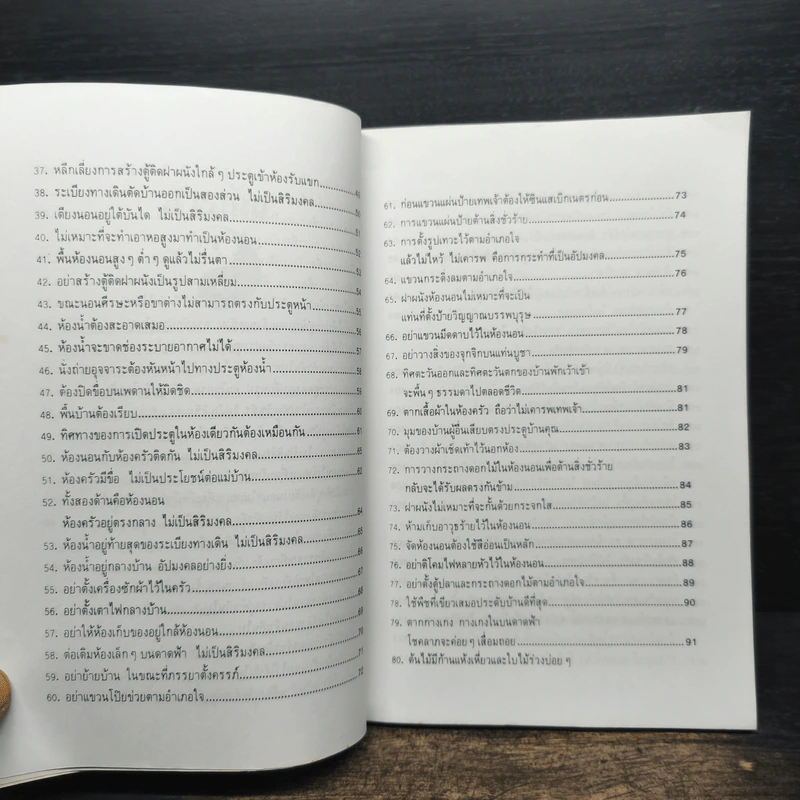 37. หลีกเลี่ยงการสร้างตู้ติดฝาผนังใกล้ ๆ ประตูเข้าห้องรับแขก
38. ระเบียงทางเดินตัดบ้านออกเป็นสองส่วน ไม่เป็นสิริมงคล
39. เตียงนอนอยู่ใต้บันได ไม่เป็นสิริมงคล
40. ไม่เหมาะที่จะทำเอาหอสูงมาทำเป็นห้องนอน
41. พื้นห้องนอนสูง ๆ ต่ำ ๆ ดูแล้วไม่รื่นตา
42. อย่าสร้างตู้ติดฝาผนังเป็นรูปสามเหลี่ยม
43. ขณะนอนศีรษะหรือขาต่างไม่สามารถตรงกับประตูหน้า
44. ห้องน้ำต้องสะอาดเสมอ
45. ห้องน้ำจะขาดช่องระบายอากาศไม่ได้
46. นั่งถ่ายอุจจาระต้องหันหน้าไปทางประตูห้องน้ำ
47. ต้องปิดขื่อบนเพดานให้มิดชิด
48. พื้นบ้านต้องเรียบ
49. ทิศทางของการเปิดประตูในห้องเดียวกันต้องเหมือนกัน
50. ห้องนอนกับห้องครัวติดกัน ไม่เป็นสิริมงคล
51. ห้องครัวมีขื่อ ไม่เป็นประโยชน์ต่อแม่บ้าน
52. ทั้งสองด้านคือห้องนอน
ห้องครัวอยู่ตรงกลาง ไม่เป็นสิริมงคล
53. ห้องน้ำอยู่ท้ายสุดของระเบียงทางเดิน ไม่เป็นสิริมงคล
54. ห้องน้ำอยู่กลางบ้าน อัปมงคลอย่างยิ่ง
55. อย่าตั้งเครื่องซักผ้าไว้ในครัว
56. อย่าตั้งเตาไฟกลางบ้าน
57. อย่าให้ห้องเก็บของอยู่ใกล้ห้องนอน
58. ต่อเติมห้องเล็ก ๆ บนดาดฟ้า ไม่เป็นสิริมงคล
59. อย่าย้ายบ้าน ในขณะที่ภรรยาตั้งครรภ์
60. อย่าแขวนโป๊ยข่วยตามอำเภอใจ
61. ก่อนแขวนแผ่นป้ายเทพเจ้าต้องให้ซินแสเบิกเนตรก่อน 73
62. การแขวนแผ่นป้ายต้านสิ่งชั่วร้าย 74
63. การตั้งรูปเทวะไว้ตามอำเภอใจ
แล้วไม่ไหว้ ไม่เคารพ คือการกระทำที่เป็นอัปมงคล 75
64. แขวนกระดิ่งลมตามอำเภอใจ 76
65. ฝาผนังห้องนอนไม่เหมาะที่จะเป็น
แท่นที่ตั้งป้ายวิญญาณบรรพบุรุษ 77
66. อย่าแขวนมีดดาบไว้ในห้องนอน 78
67. อย่าวางสิ่งของจุกจิกบนแท่นบูชา 79
68. ทิศตะวันออกและทิศตะวันตกของบ้านพักเว้าเข้า
จะพื้น ๆ ธรรมดาไปตลอดชีวิต 81
69. ตากเสื้อผ้าในห้องครัว ถือว่าไม่เคารพเทพเจ้า 81
70. มุมของบ้านผู้อื่นเสียบตรงประตูบ้านคุณ 82
71. ต้องวางผ้าเช็ดเท้าไว้นอกห้อง 83
72. การวางกระถางดอกไม้ในห้องนอนเพื่อต้านสิ่งชั่วร้าย
กลับจะได้รับผลตรงกันข้าม 84
73. ฝาผนังไม่เหมาะที่จะกั้นด้วยกระจกใส 85
74. ห้ามเก็บอาวุธร้ายไว้ในห้องนอน 86
75. จัดห้องนอนต้องใช้สีอ่อนเป็นหลัก 87
76. อย่าติโคมไฟหลายหัวไว้ในห้องนอน 88
77. อย่าตั้งตู้ปลาและกระถางดอกไม้ตามอำเภอใจ 89
78. ใช้พืชที่เขียวเสมอประดับบ้านดีที่สุด 90
79. ตากกางเกง กางเกงในบนดาดฟ้า
โชคลาภจะค่อย ๆ เสื่อมถอย 91
80. ต้นไม้มีก้านแห้งเหี่ยวและใบไม้ร่วงบ่อย ๆ